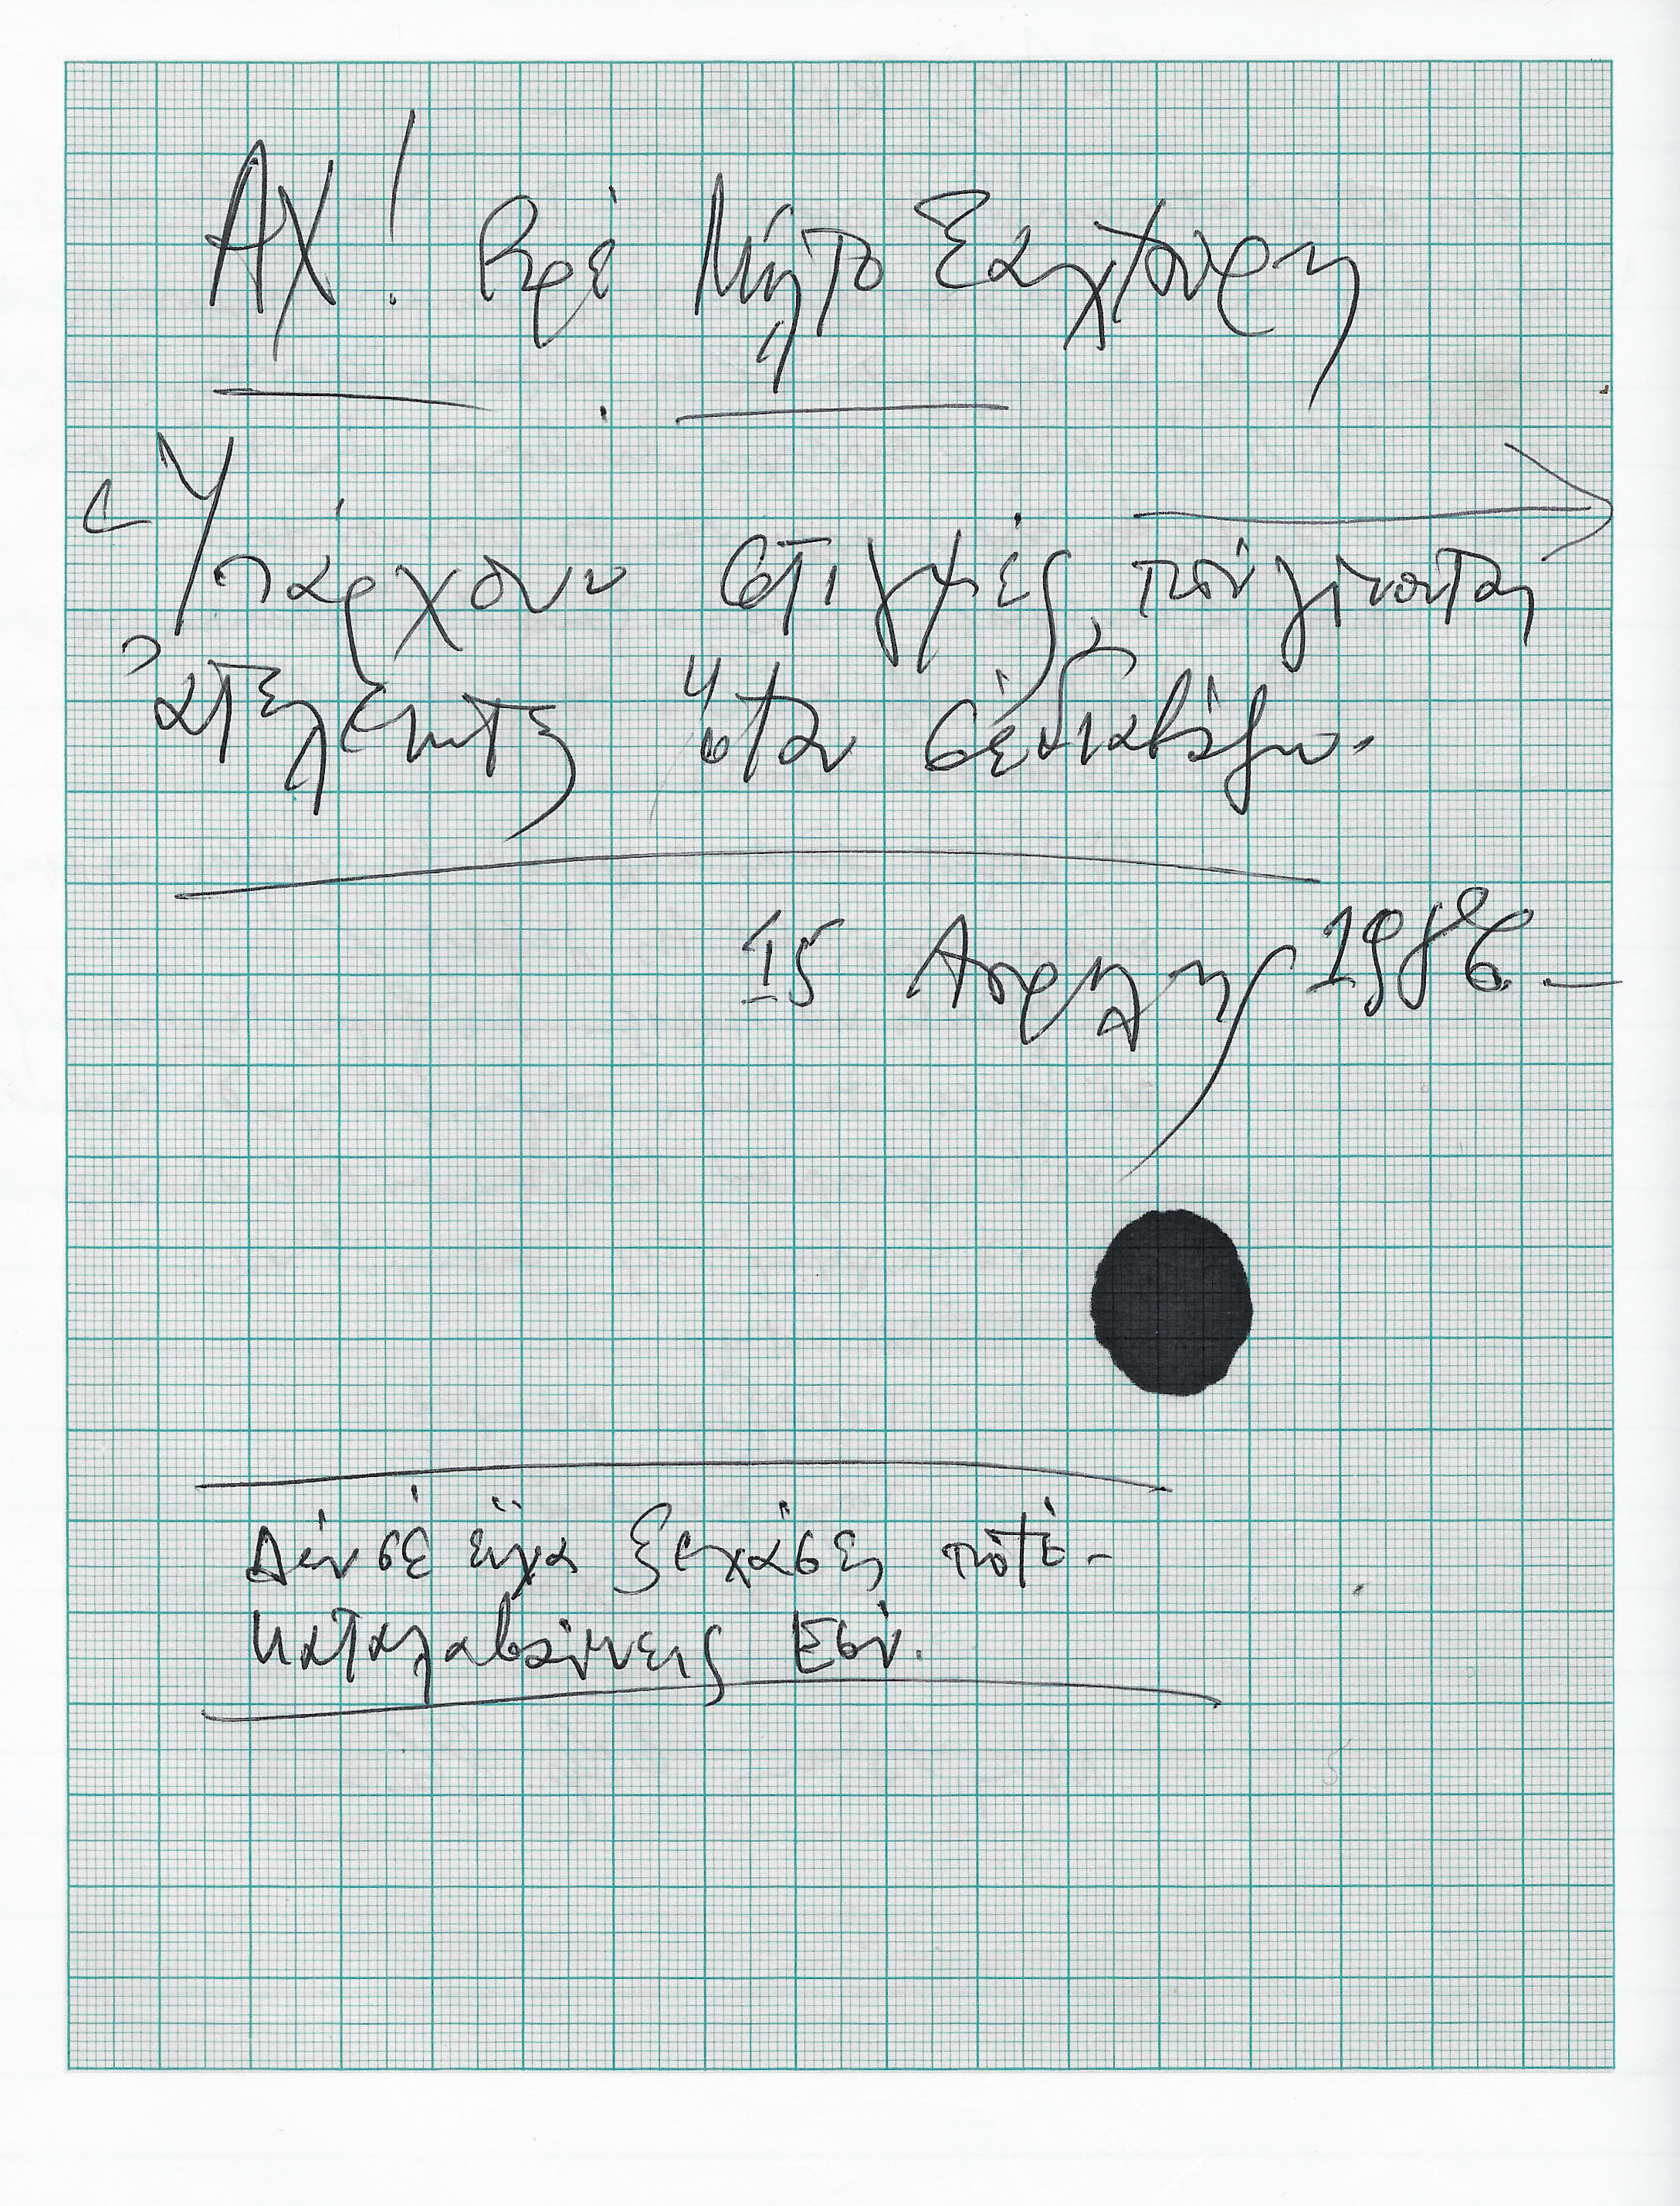 ΑΧ! βρέ Μίλτο Σαχτούρη
Ὑπάρχουν στιγμές, πού γίνονται
ἀτέλειωτες ὅταν σέ διαβάζω.
15 Απρίλη 1986.
Δέν σέ εἶχα ξεχάσει ποτέ -
καταλαβαίνεις Εσύ.